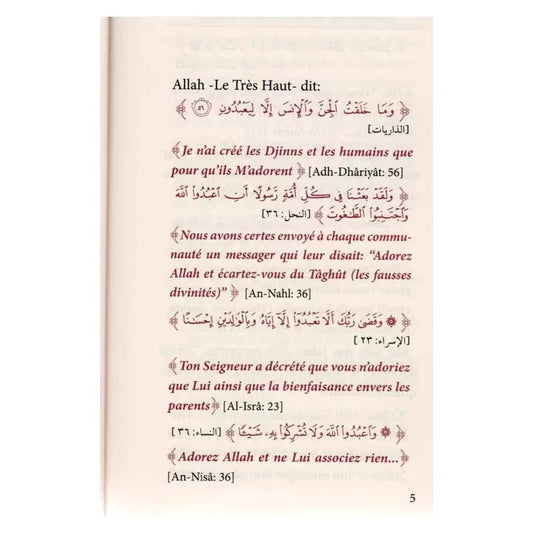 Allah -Le Très Haut- dit:
﴿ وَمَا خَلَقْتُ ٱلْجِنَّ وَٱلْإِنسَ إِلَّا لِيَعْبُدُونِ ٥٦ ﴾
[الذاريات]
﴿Je n'ai créé les Djinns et les humains que
pour qu'ils M'adorent ﴾ [Adh-Dhâriyât: 56]
﴿ وَلَقَدْ بَعَثْنَا فِي كُلِّ أُمَّةٍ رَّسُولًا أَنِ ٱعْبُدُوا۟ ٱللَّهَ
وَٱجْتَنِبُوا۟ ٱلطَّـٰغُوتَ ﴾ [النحل: ٣٦]
﴿Nous avons certes envoyé à chaque commu-
nauté un messager qui leur disait: “Adorez
Allah et écartez-vous du Tâghût (les fausses
divinités)” ﴾ [An-Nahl: 36]
﴿ ۞ وَقَضَىٰ رَبُّكَ أَلَّا تَعْبُدُوٓا۟ إِلَّآ إِيَّاهُ وَبِٱلْوَٰلِدَيْنِ إِحْسَـٰنًا ﴾
[الإسراء: ٢٣]
﴿ Ton Seigneur a décrété que vous n'adoriez
que Lui ainsi que la bienfaisance envers les
parents﴾ [Al-Isrâ: 23]
﴿ ۞ وَٱعْبُدُوا۟ ٱللَّهَ وَلَا تُشْرِكُوا۟ بِهِۦ شَيْـًٔا ﴾ [النساء: ٣٦]
﴿ Adorez Allah et ne Lui associez rien...﴾
[An-Nisâ: 36]
5